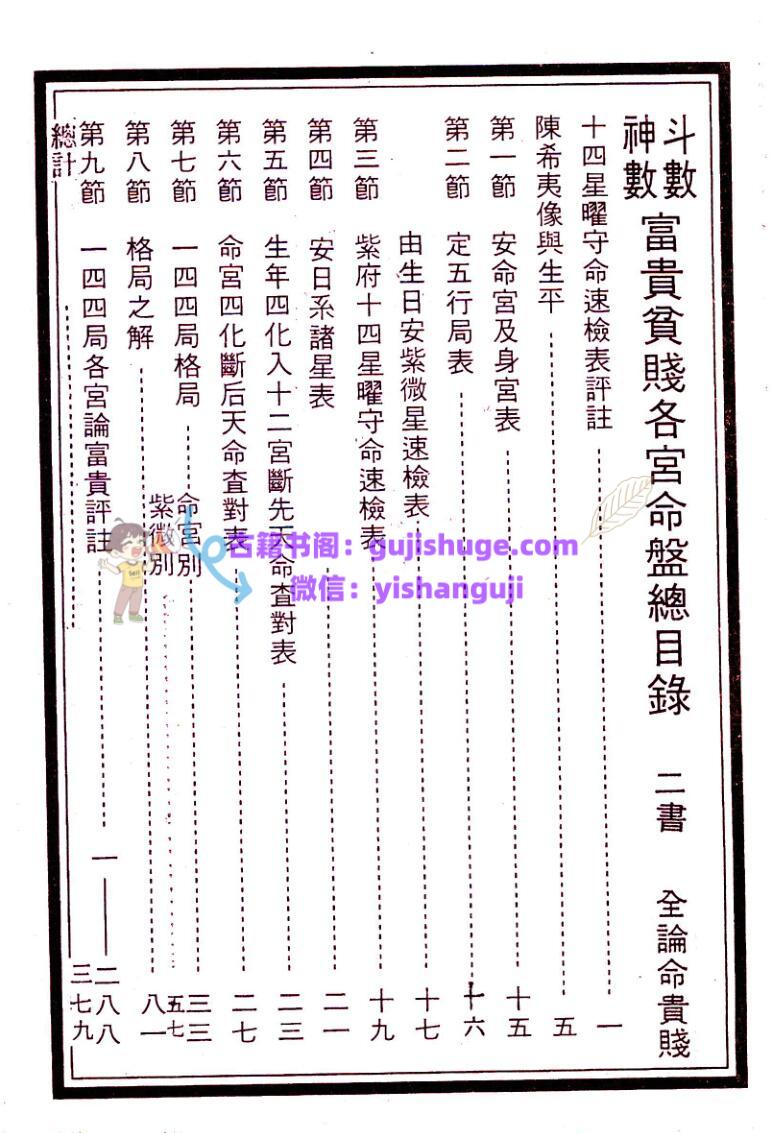 斗數神數 富貴貧賤各宮命盤總目錄 二書 全論命貴賤
十四星曜守命速檢表評註 一
陳希夷像與生平 五
第一節 安命宮及身宮表 十五
第二節 定五行局表 十六
由生日安紫微星速檢表 十七
第三節 紫府十四星曜守命速檢表 十九
第四節 安日系諸星表 二一
第五節 生年四化入十二宮斷先天命查對表 二三
第六節 命宮四化斷后天命查對表 二七
第七節 一四四局格局 命宮別 三三
紫微別 五七
第八節 格局之解 八一
第九節 一四四局各宮論富貴評註 一——二八八
總計 三七九
古籍书阁：gujishuge.com
微信：yishanguji